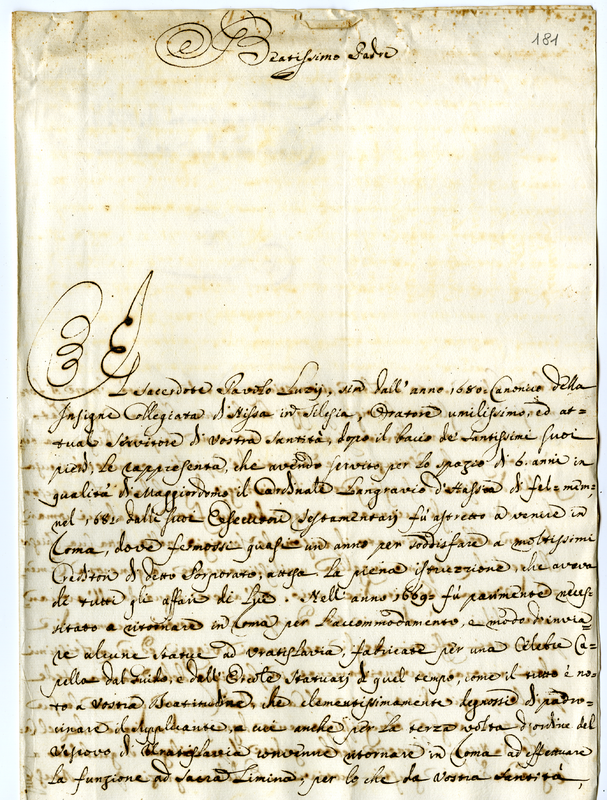 181
Beatissimo Padre
Il Sacerdote Pavolo Luzij, sin dall' anno 1680. Canonico della
Insigne Collegiata di Nissa in Silesia, Oratore umilissimo, ed at-
tual Servitore di Vostra Santità, dopo il bacio de' Santissimi suoi
piedi, Le rappresenta, che avendo servito per lo spazio di 6. anni in
qualità di Maggiordomo il Cardinale Langravio d'Hassia di fel: mem:
nel 1682 dalli suoi Essecutori Testamentarij fù astretto a venire in
Roma, dove fermossi quasi un anno per soddisfare a moltissimi
Creditori di detto Porporato, attesa la piena istruzzione, che aveva
di tutti gli affari di Lui. Nell' anno 1689. fù parimente neces-
sitato a ritornare in Roma per l'accommodamento, e modo d'invia-
re alcune statue ad Vratislavia, fabricate per una Celebre Ca-
pella dal Guido, e dall' Ercole Statuarij di quel tempo, come il tutto è no-
to a Vostra Beatitudine, che clementissimamente degnossi di patro-
cinare il supplicante, a cui anche per la terza volta d'ordine del
Vescovo di Vratislavia convenne ritornare in Roma ad effettuare
la funzione ad Sacra Limina; per lo che da Vostra Santità,